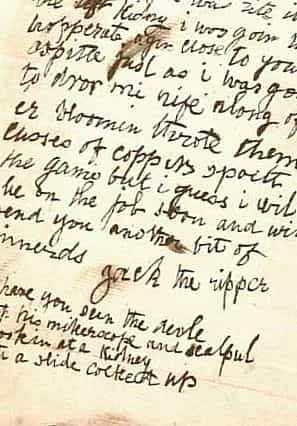 was rite it
the left kidny i was goin
hoperate agin close to you
ospitle just as i was go
to dror mi nife along of
er bloomin throte them
cusses of coppers spoilt
the game but i guess i wil
be on the job soon and wil
send you another bit of
innerds
Jack the ripper
have you seen the devle
his mikerscope and scalpul
lookin at a kidney
a slide cocked up